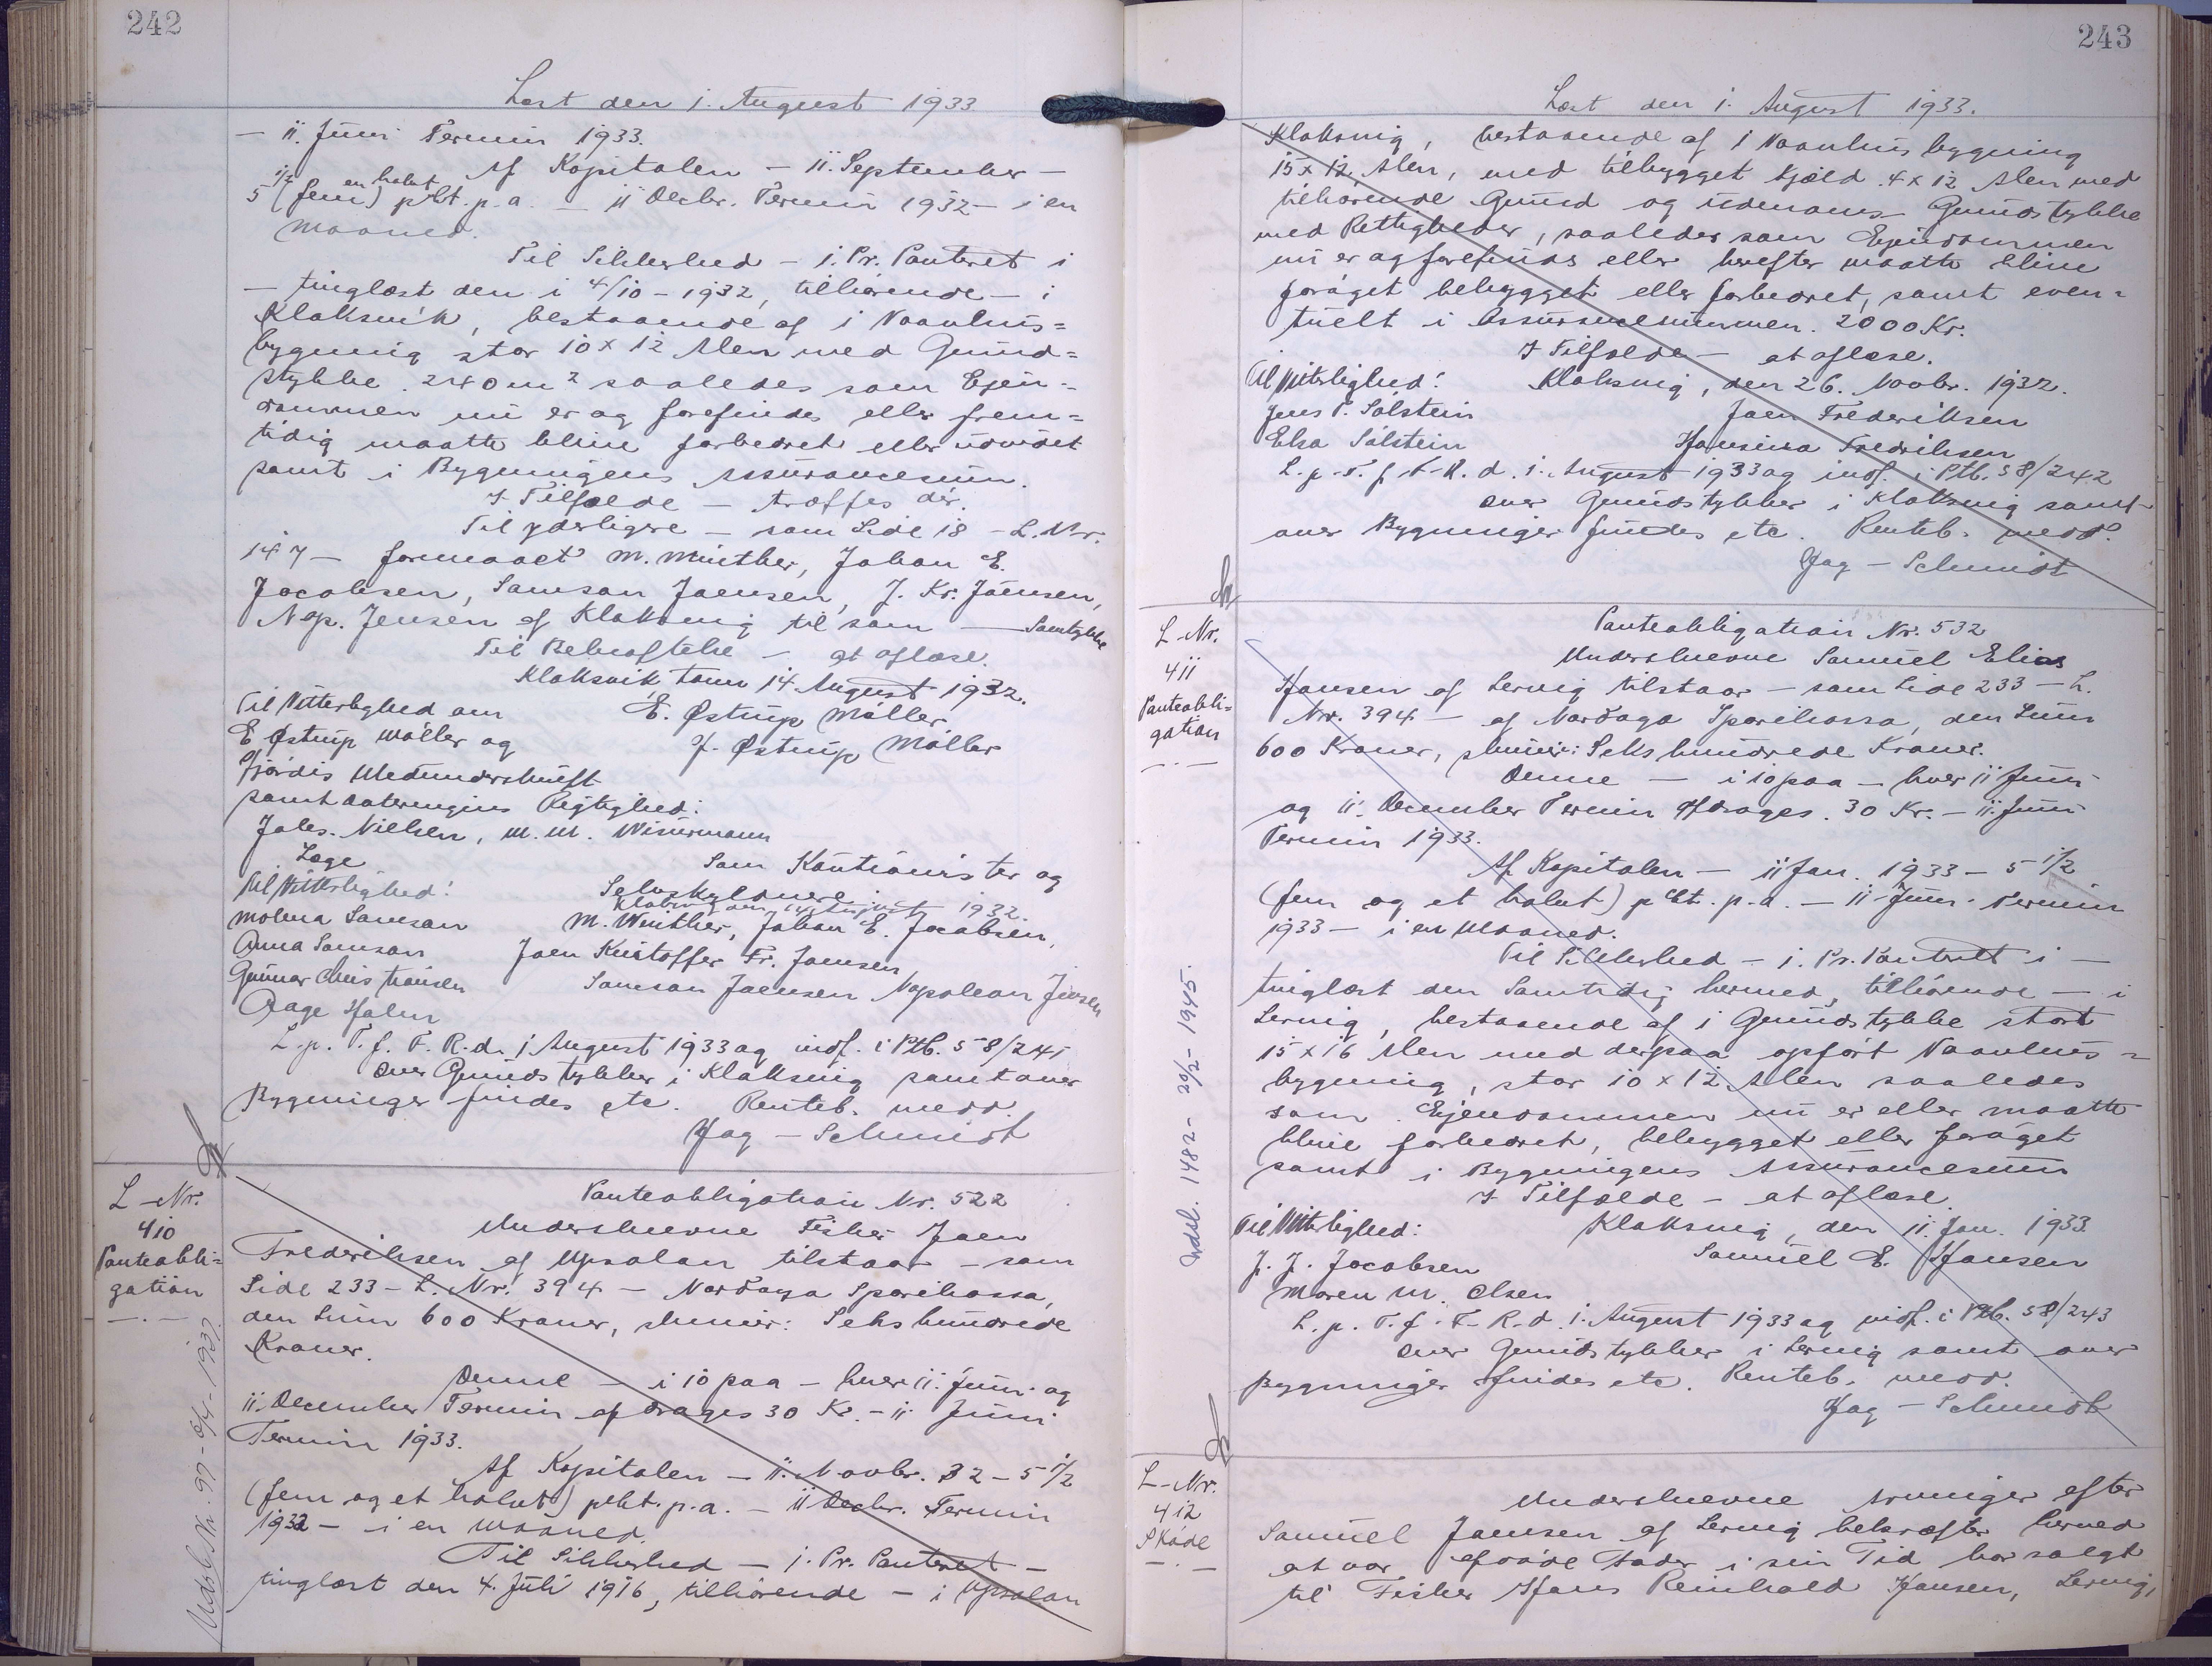 242
Læst den 1. August 1933
— 11. Juni Termin 1933.
Af Kapitalen — 11. September —
5 1/2 (fem en halvt) pCt. p.a. — 11 Decbr. Termin 1932 — i en
Maaned.
Til Sikkerhed — 1. Pr. Panteret i
— tinglæst den i 4/10 - 1932, tilhørende — i
Klaksvik, bestaaende af 1 Vaanhus=
bygning stor 10 x 12 Alen med Grund=
stykke 240 m² saaledes som Ejen=
dommen nu er og forefindes eller frem=
tidig maatte blive forbedret eller udvidet
samt i Bygningens Assurancesum.
I Tilfælde — træffes dér.
Til yderligere — som Side 18 - L. Nr.
147 — formaaet M. Winther, Johan E.
Jacobsen, Samson Joensen, J. Kr. Joensen,
Nap. Jensen af Klaksvig til som — Samtykke
Til Bekræftelse — at aflæse.
Klaksvik, den 14 August 1932.
Til Vitterlighed om
E. Østrup Møller
E Østrup Møller og
J. Østrup Møller
Hjørdis Medunderskrift
samt Dateringens Rigtighed:
Johs. Nielsen, M. M. Winermann
Læge
Som Kautionister og
Selvskyldnere
Til Vitterlighed:
Klaksvig den 14 August 1932.
Molena Samson
M. Winther, Johan E. Jacobsen,
Anna Samson
Joen Kristoffer Fr. Joensen
Gunnar Christiansen
Samson Joensen Napoleon Jensen
Aage Holm
L. p. T. f. F. R. d. 1 August 1933 og indf. i Ptb. 58/241
Over Grundstykker i Klaksvig samt over
Bygninger findes etc. Renteb. medd.
Hag - Schmidt
L-Nr.
410
Panteobli=
gation
Udsl. Nr. 97 - 8/4 - 1937.
Panteobligation Nr. 522
Underskrevne Fisker Joen
Frederiksen af Upsalan tilstaar - som
Side 233 - L. Nr. 394 - Nordoya Sparikassa,
den Sum 600 Kroner, skriver: Seks hundrede
Kroner.
Denne — i 10 paa — hver 11. Juni og
11. December Termin afdrages 30 Kr. - 11 Juni
Termin 1933.
Af Kapitalen — 11. Novbr. 32 - 5 1/2
(fem og et halvt) pCt. p.a. — 11 Decbr. Termin
1932 — i en Maaned.
Til Sikkerhed — 1. Pr. Panteret —
tinglæst den 4. Juli 1916, tilhørende — i Upsalan
243
Læst den 1. August 1933.
Klaksvig, bestaaende af 1 Vaanhusbygning
15 x 12 Alen, med tilbygget Kjeld 4 x 12 Alen med
tilhørende Grund og udenoms Grundstykke
med Rettigheder, saaledes som Ejendommen
nu er og forefindes eller herefter maatte blive
forøget bebygget eller forbedret, samt even=
tuelt i Assurancesummen. 2000 Kr.
I Tilfælde — at aflæse.
Til Vitterlighed:
Klaksvig, den 26. Novbr. 1932.
Jens P. Sólstein
Joen Frederiksen
Elsa Sólstein
Hansina Fredriksen
L. p. T. f. F. R. d. 1. August 1933 og indf. i Ptb. 58/242
over Grundstykker i Klaksvig samt
over Bygninger findes etc. Renteb. medd.
Hag - Schmidt
L-Nr.
411
Panteobli=
gation
Udsl. 1482 - 20/2 - 1945.
Panteobligation Nr. 532
Underskrevne Samuel Elias
Hansen af Lervig tilstaar — som Side 233 — L.
Nr. 394 — af Nordoya Sparikassa, den Sum
600 Kroner, skriver: Seks hundrede Kroner.
Denne — i 10 paa — hver 11 Juni
og 11. December Termin afdrages. 30 Kr. — 11. Juni
Termin 1933.
Af Kapitalen — 11 Jan. 1933 — 5 1/2
(fem og et halvt) pCt. p.a. — 11 Juni Termin
1933 — i en Maaned.
Til Sikkerhed — 1. Pr. Panteret i —
tinglæst den Samtidig hermed, tilhørende — i
Lervig, bestaaende af 1 Grundstykke stort
15 x 16 Alen med derpaa opført Vaanhus=
bygning, stor 10 x 12 Alen saaledes
som Ejendommen nu er eller maatte
blive forbedret, bebygget eller forøget
samt i Bygningens Assurancesum
I Tilfælde — at aflæse.
Til Vitterlighed:
Klaksvig, den 11. Jan. 1933.
J. J. Jacobsen
Samuel E. Hansen
Maren M. Olsen
L. p. T. f. F. R. d. 1. August 1933 og indf. i Ptb. 58/243
over Grundstykker i Lervig samt over
Bygninger findes etc. Renteb. medd.
Hag - Schmidt
L-Nr.
412
Skøde
Underskrevne Arvinger efter
Samuel Joensen af Lervig bekræfter herved
at vor afdøde Fader i sin Tid har solgt
til Fisker Hans Reinhold Hansen, Lervig,